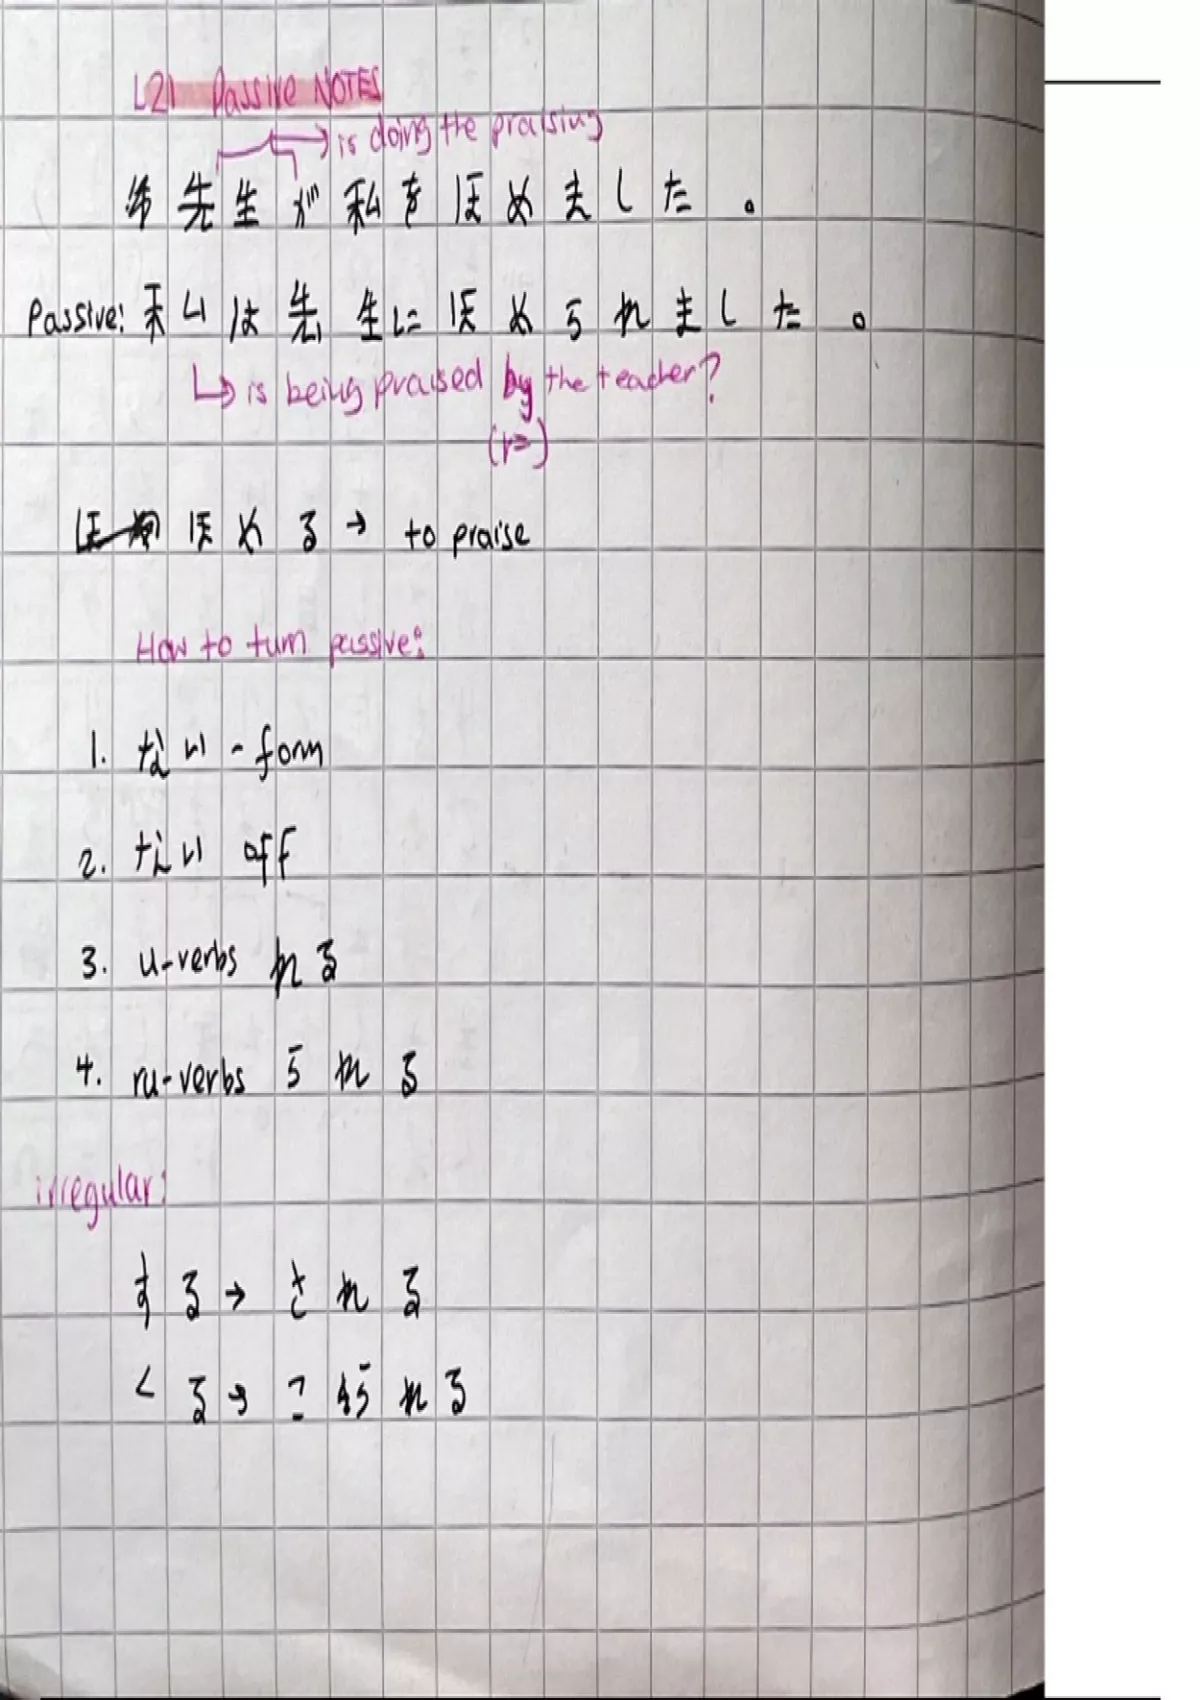 L21 Passive NOTES
→ is doing the praising
先生が私をほめました。
Passive: 私は先生にほめられました。
↳ is being praised by the teacher?
(に)
ほめる → to praise
How to turn passive:
1. ない-form
2. ない off
3. u-verbs れる
4. ru-verbs られる
irregular:
する → される
くる → こられる